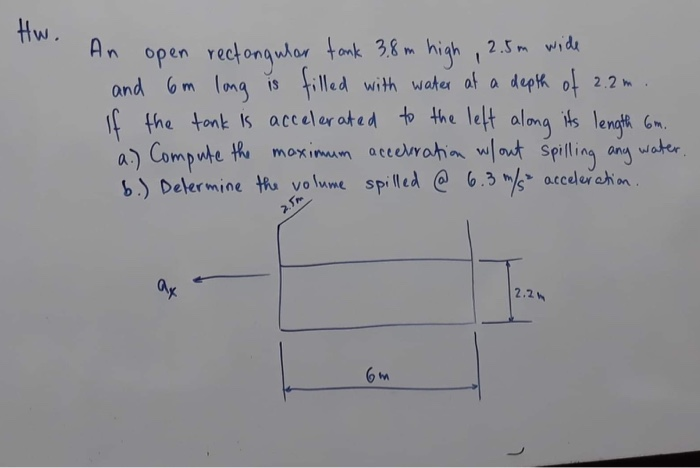 Hw.
An open rectangular tank 3.8m high, 2.5m wide
and 6m long is filled with water at a depth of 2.2m.
If the tank is accelerated to the left along its length 6m.
a.) Compute the maximum acceleration w/out spilling any water.
b.) Determine the volume spilled @ 6.3 m/s² acceleration.
2.5m
ax
2.2m
6m